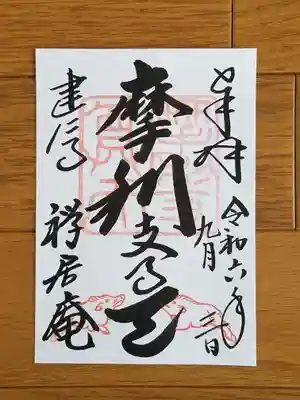 奉拝
令和六年
九月
摩利支尊天
建仁寺
禪居庵